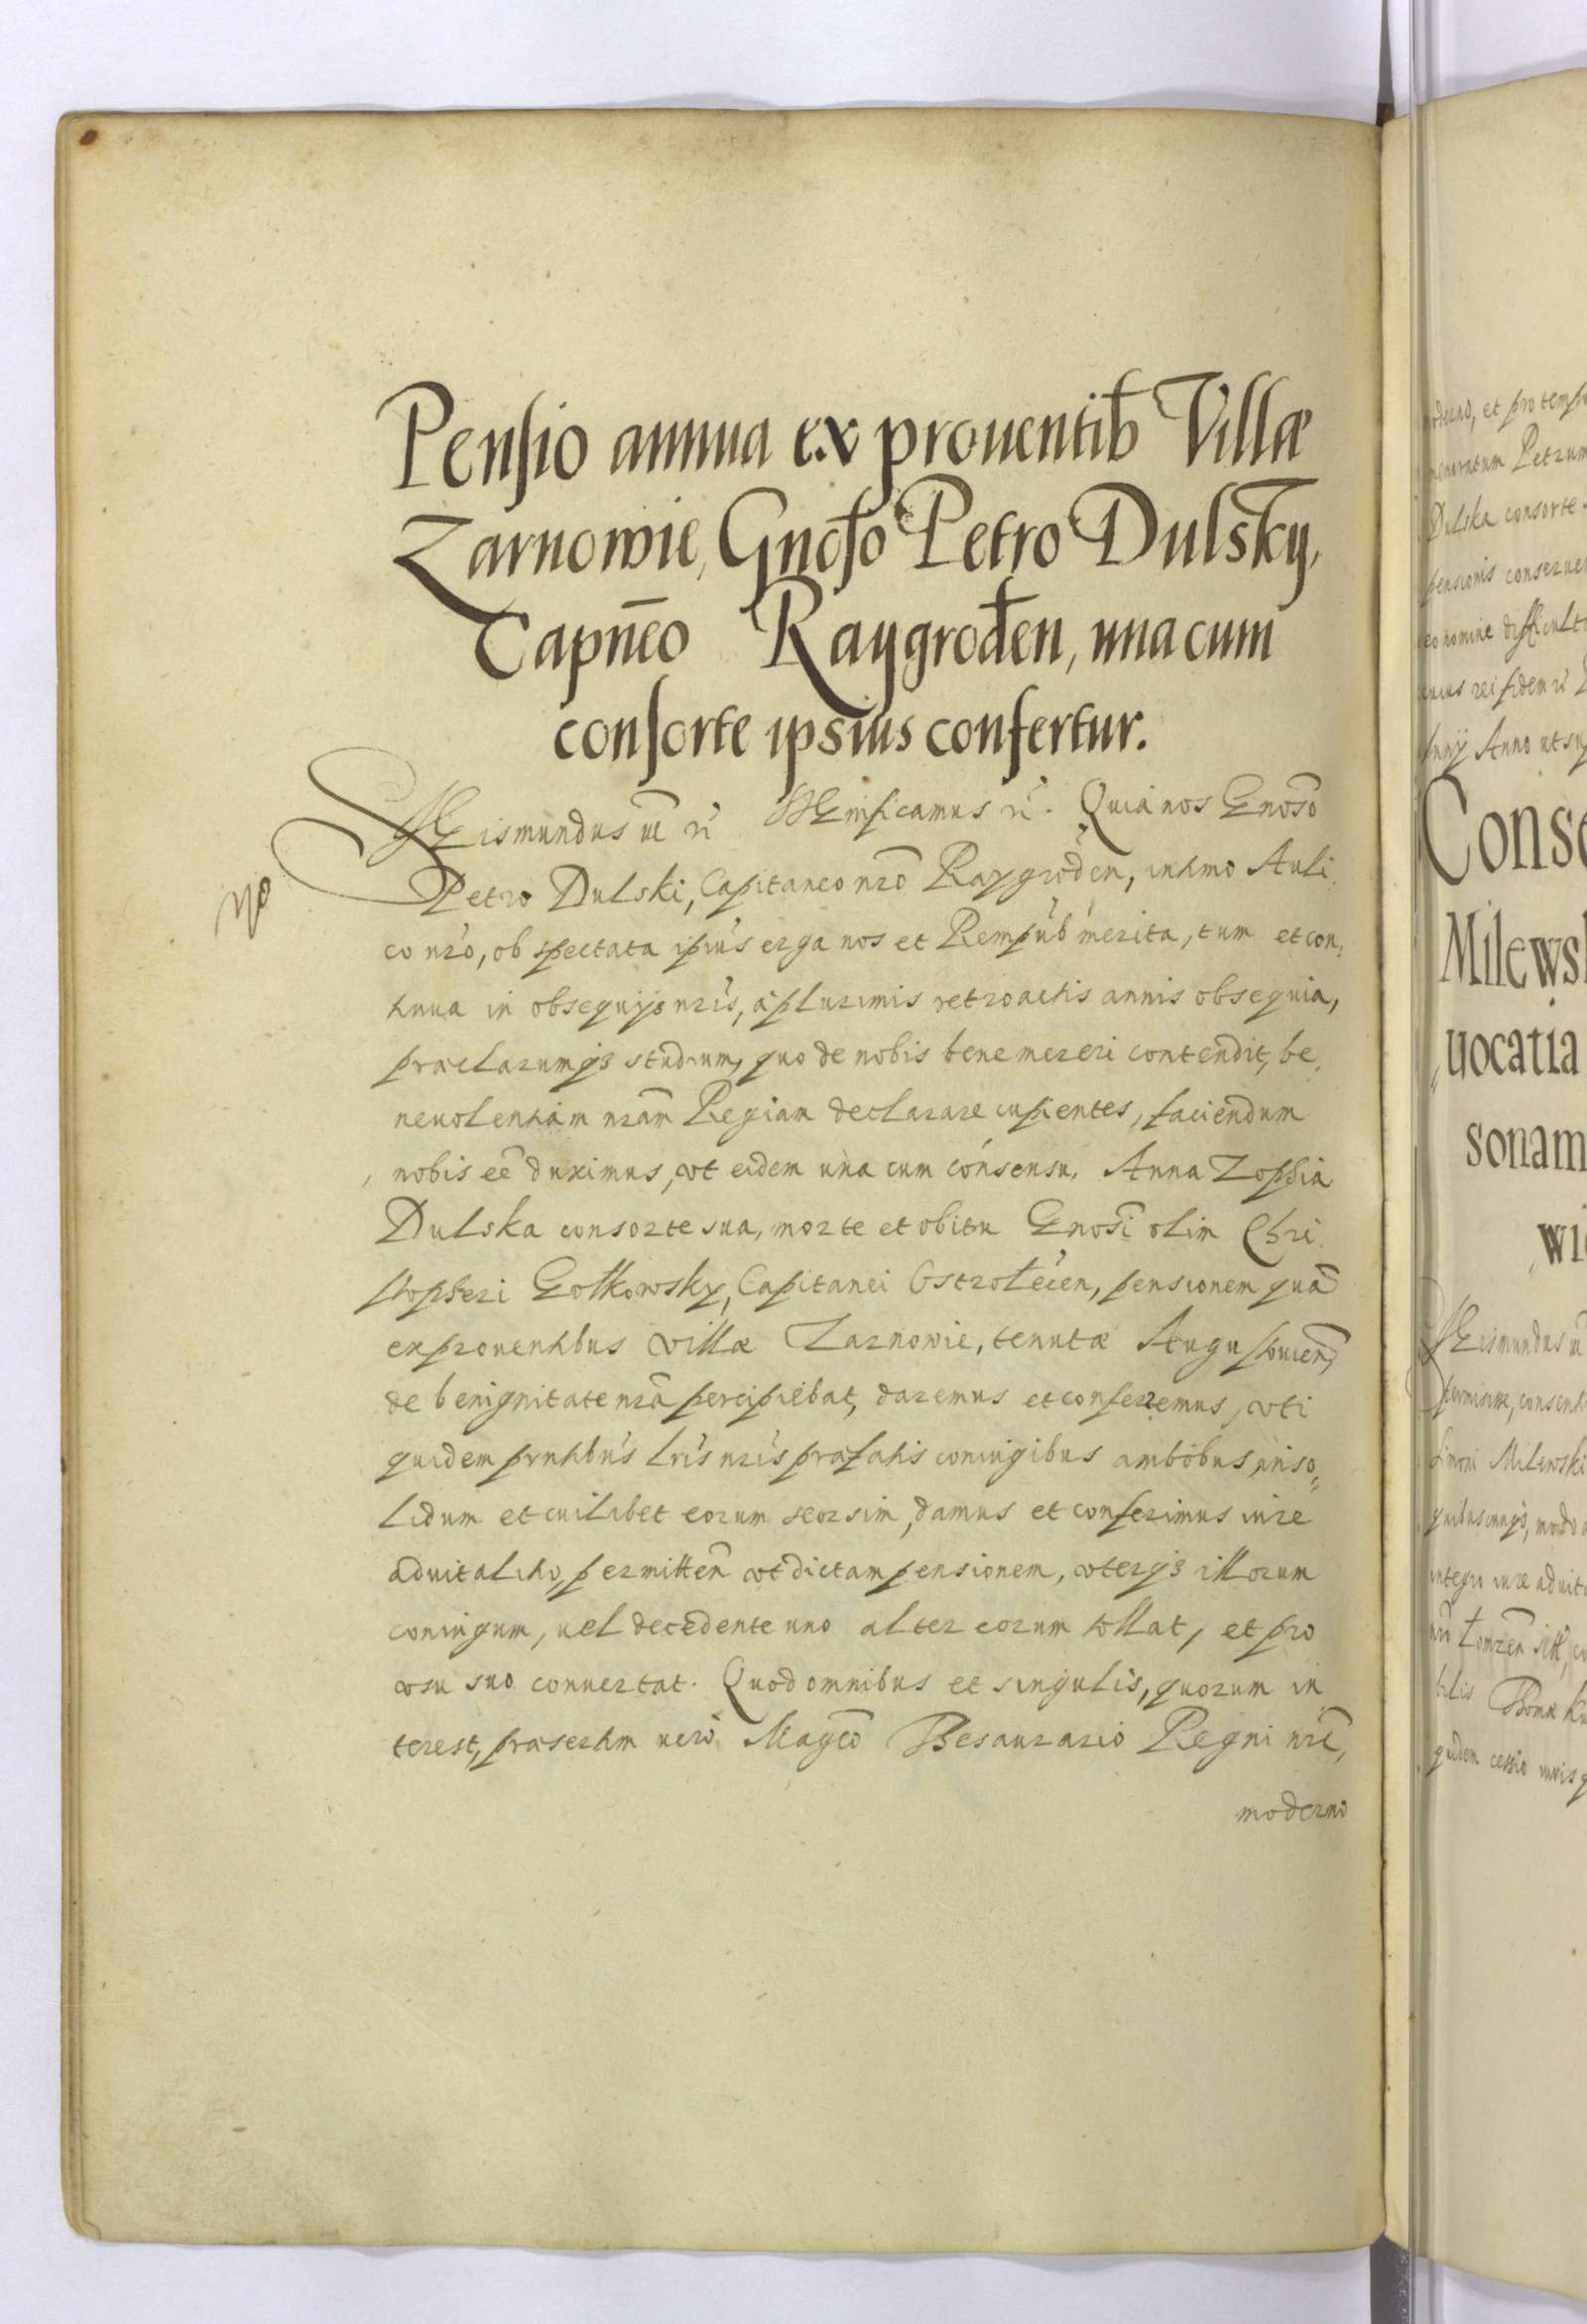 Pensio annua ex prouentib Villæ
Zarnowie, Gnoso Petro Dulsky,
Capneo Raygroden, una cum
consorte ipsius confertur.
Sigismundus III etc Significamus etc. Quia nos Gnoso
Petro Dulski, Capitaneo nro Raygroden, intimo Auli,
co nro, ob spectata ipius erga nos et Rempub merita, tum et con,
tinua in obsequijs nris, a plurimis retroactis annis obsequia,
præclarumqz studium, quo de nobis bene mereri contendit, be,
neuolentiam nram Regiam declarare cupientes, faciendum
nobis ee duximus, vt eidem una cum consensu, Anna Zophia
Dulska consorte sua, morte et obitu Gnosi olim Chri,
stopheri Gotkowsky, Capitanei Ostrołecen, pensionem qua
ex prouentibus villæ Zarnowie, tenutæ Augustouien,
de benignitate nra percipiebat, daremus et conferemus, vti
quidem prntibus lris nris præfatis coniugibus ambobus, inso,,
lidum et cuilibet eorum seorsim, damus et conferimus iure
aduitalitio, permitten vt dictam pensionem, vterqz illorum
coniugum, uel decedente uno alter eorum tollat, et pro
vsu suo conuertat. Quod omnibus et singulis, quorum in
terest, præsertim uero Magco Thesaurario Regni nri,
moderno
oderno, et pro temp
Petrum
Dulska consorte
pensionis conserue
eo nomine difficult
cuius rei fidem etc
Anno ut su
Conse
Milews
uocatia
sonam
wi
Sigismundus
Milewski
integro iure aduit